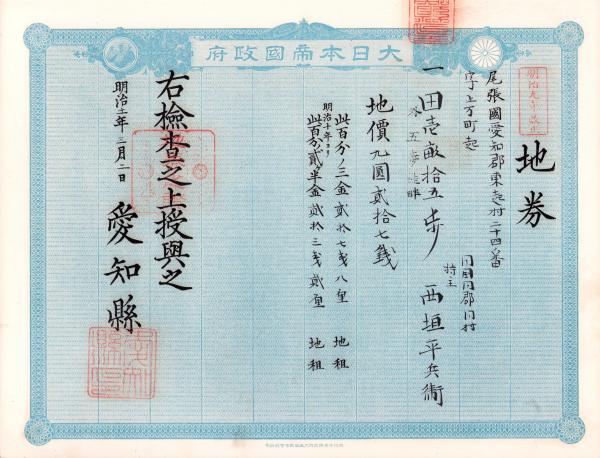 大日本帝國政府
明治九年改正
地券
尾張國愛知郡東起村二十四番
字上万町起
一田壱畝拾五歩
同国同郡同村
持主
西垣平兵衛
地價九圓貳拾七銭
此百分ノ三金貳拾七銭八厘 地租
明治十年ヨリ
此百分ノ貳半金貳拾三銭貳厘 地租
右檢査之上授與之
明治十一年三月二日
愛知縣